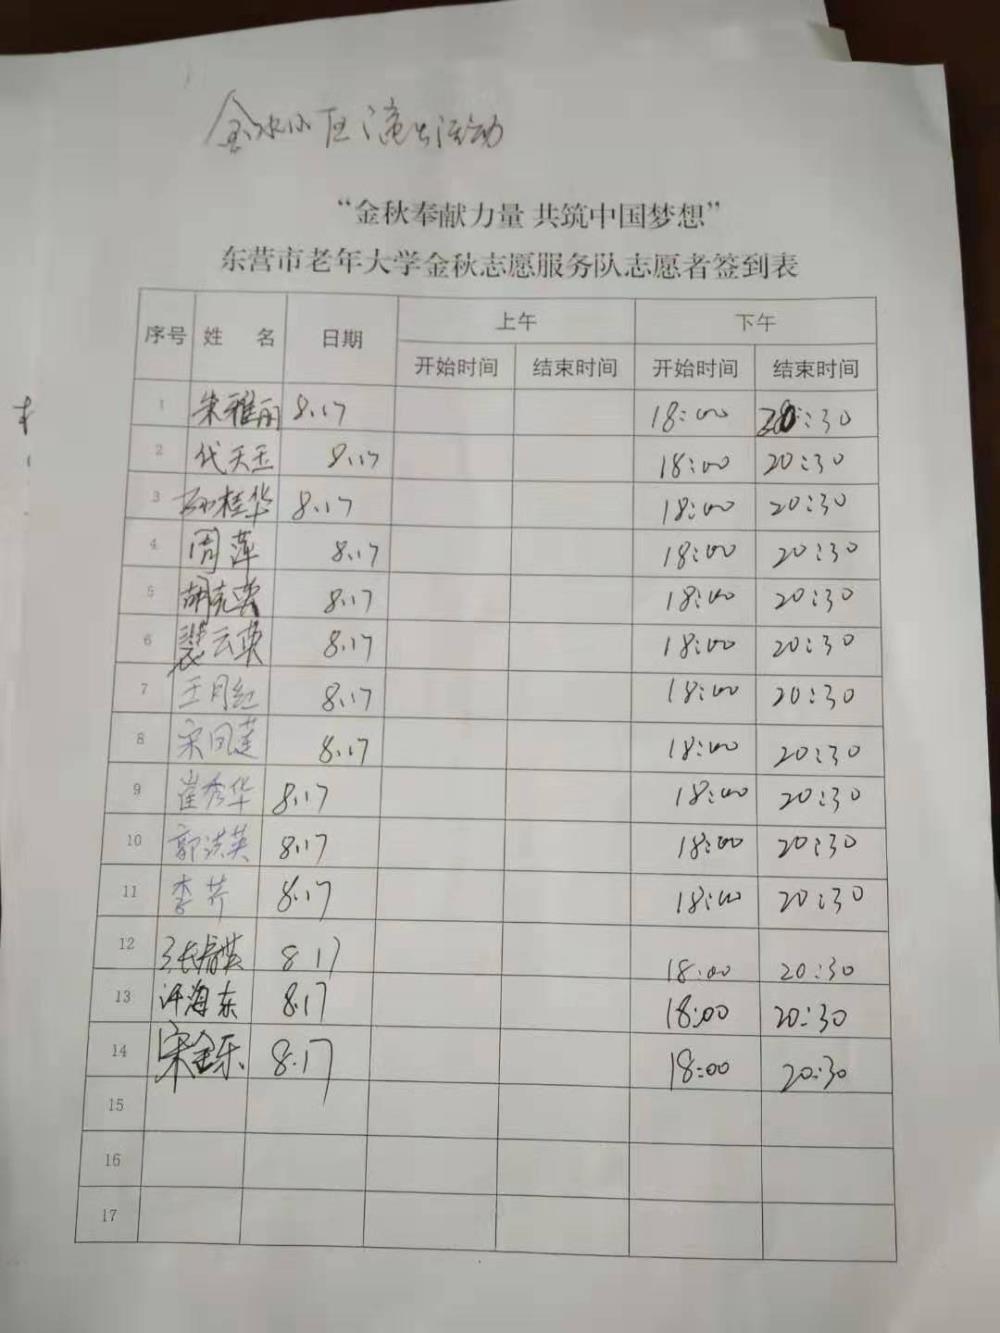 金水小区演出活动
“金秋奉献力量 共筑中国梦想”
东营市老年大学金秋志愿服务队志愿者签到表
序号 姓 名 日期 上午 下午
开始时间 结束时间 开始时间 结束时间
1 朱雅丽 8.17 18:00 20:30
2 代天玉 8.17 18:00 20:30
3 孙桂华 8.17 18:00 20:30
4 周萍 8.17 18:00 20:30
5 胡克英 8.17 18:00 20:30
6 裴云英 8.17 18:00 20:30
7 王月红 8.17 18:00 20:30
8 宋凤莲 8.17 18:00 20:30
9 崔秀华 8.17 18:00 20:30
10 郭洪英 8.17 18:00 20:30
11 李芹 8.17 18:00 20:30
12 8 17 18:00 20:30
13 许海东 8.17 18:00 20:30
14 宋金乐 8.17 18:00 20:30
15
16
17